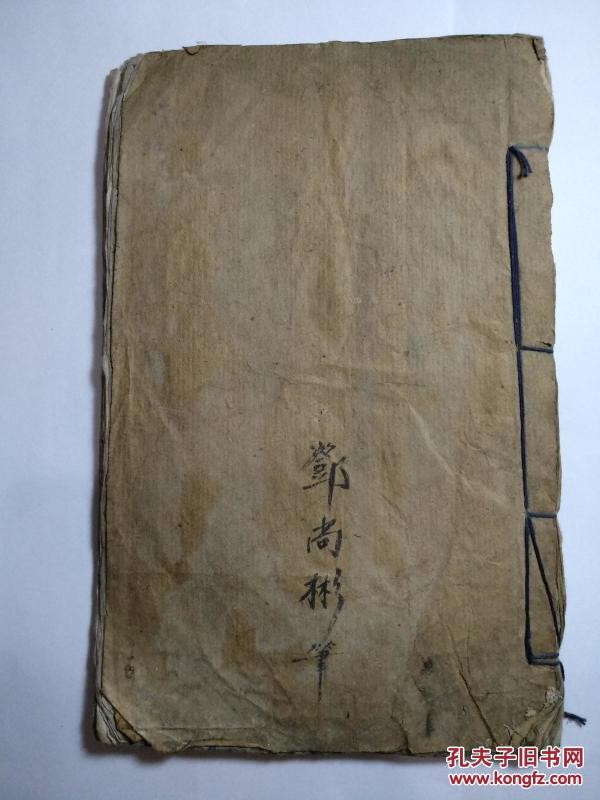 鄧尚彬筆
孔夫子旧书网
www.kongfz.com